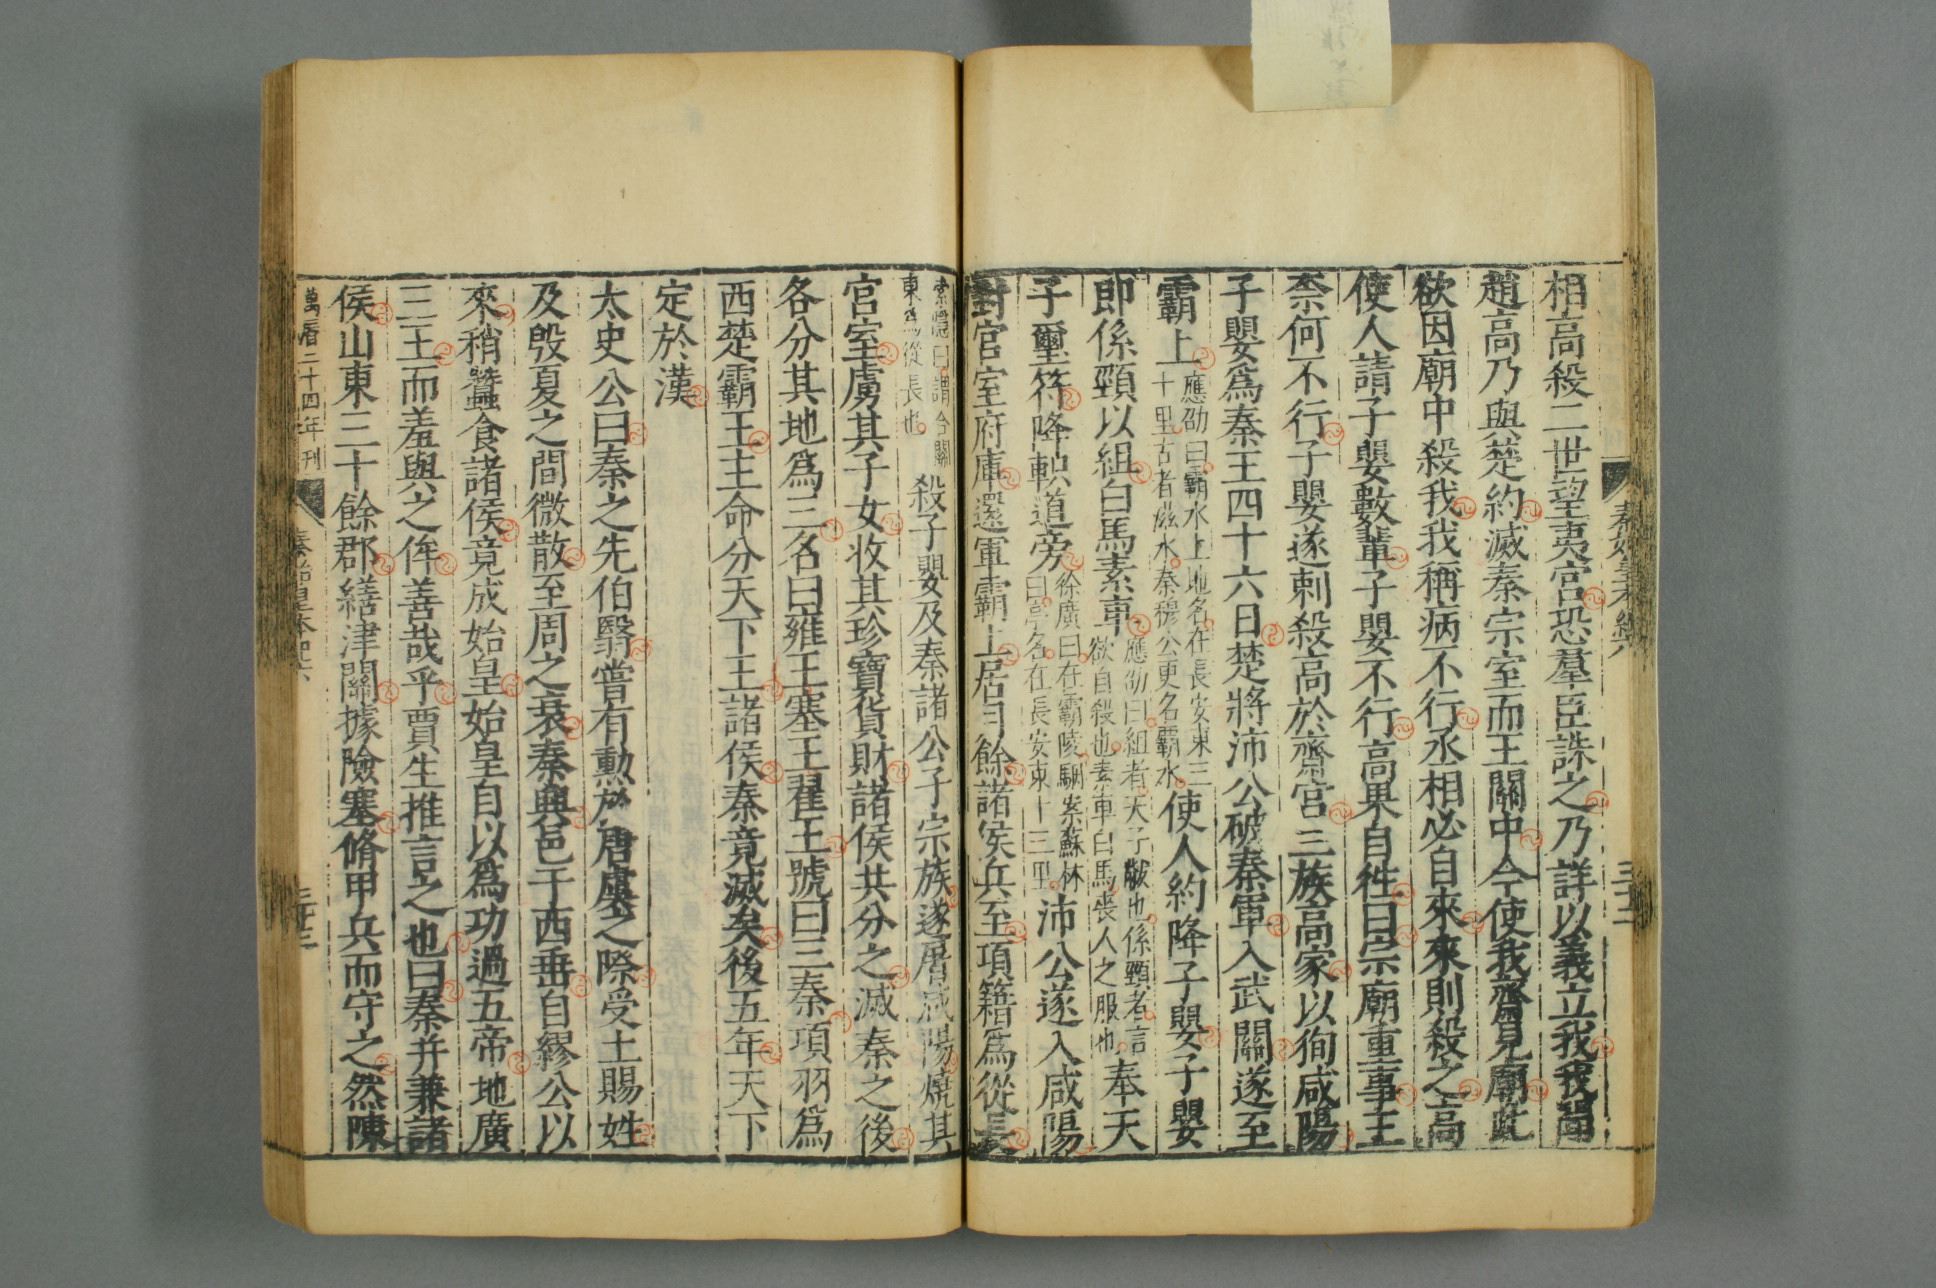 秦始皇本紀六
三十二
相高殺二世望夷宮恐羣臣誅之乃詳以義立我我聞
趙高乃與楚約滅秦宗室而王關中今使我齋見廟此
欲因廟中殺我我稱病不行丞相必自來來則殺之高
使人請子嬰數輩子嬰不行高果自徃曰宗廟重事王
柰何不行子嬰遂刺殺高於齋宮三族高家以徇咸陽
子嬰爲秦王四十六日楚將沛公破秦軍入武關遂至
霸上應劭曰霸水上地名在長安東三十里古者滋水秦穆公更名霸水使人約降子嬰子嬰
即係頸以組白馬素車應劭曰組者天子黻也係頸者言欲自殺也素車白馬喪人之服也奉天
子璽符降軹道旁徐廣曰在霸陵駰案蘇林曰亭名在長安東十三里沛公遂入咸陽
封宮室府庫還軍霸上居月餘諸侯兵至項籍爲從長
索隱曰謂合關東爲從長也殺子嬰及秦諸公子宗族遂屠咸陽燒其
宮室虜其子女收其珍寶貨財諸侯共分之滅秦之後
各分其地爲三名曰雍王塞王翟王號曰三秦項羽爲
西楚霸王主命分天下王諸侯秦竟滅矣後五年天下
定於漢
太史公曰秦之先伯翳嘗有勲於唐虞之際受土賜姓
及殷夏之間微散至周之衰秦興邑于西垂自繆公以
來稍蠶食諸侯竟成始皇始皇自以爲功過五帝地廣
三王而羞與之侔善哉乎賈生推言之也曰秦并兼諸
侯山東三十餘郡繕津關據險塞脩甲兵而守之然陳
萬曆二十四年刊
秦始皇本紀六
三十二